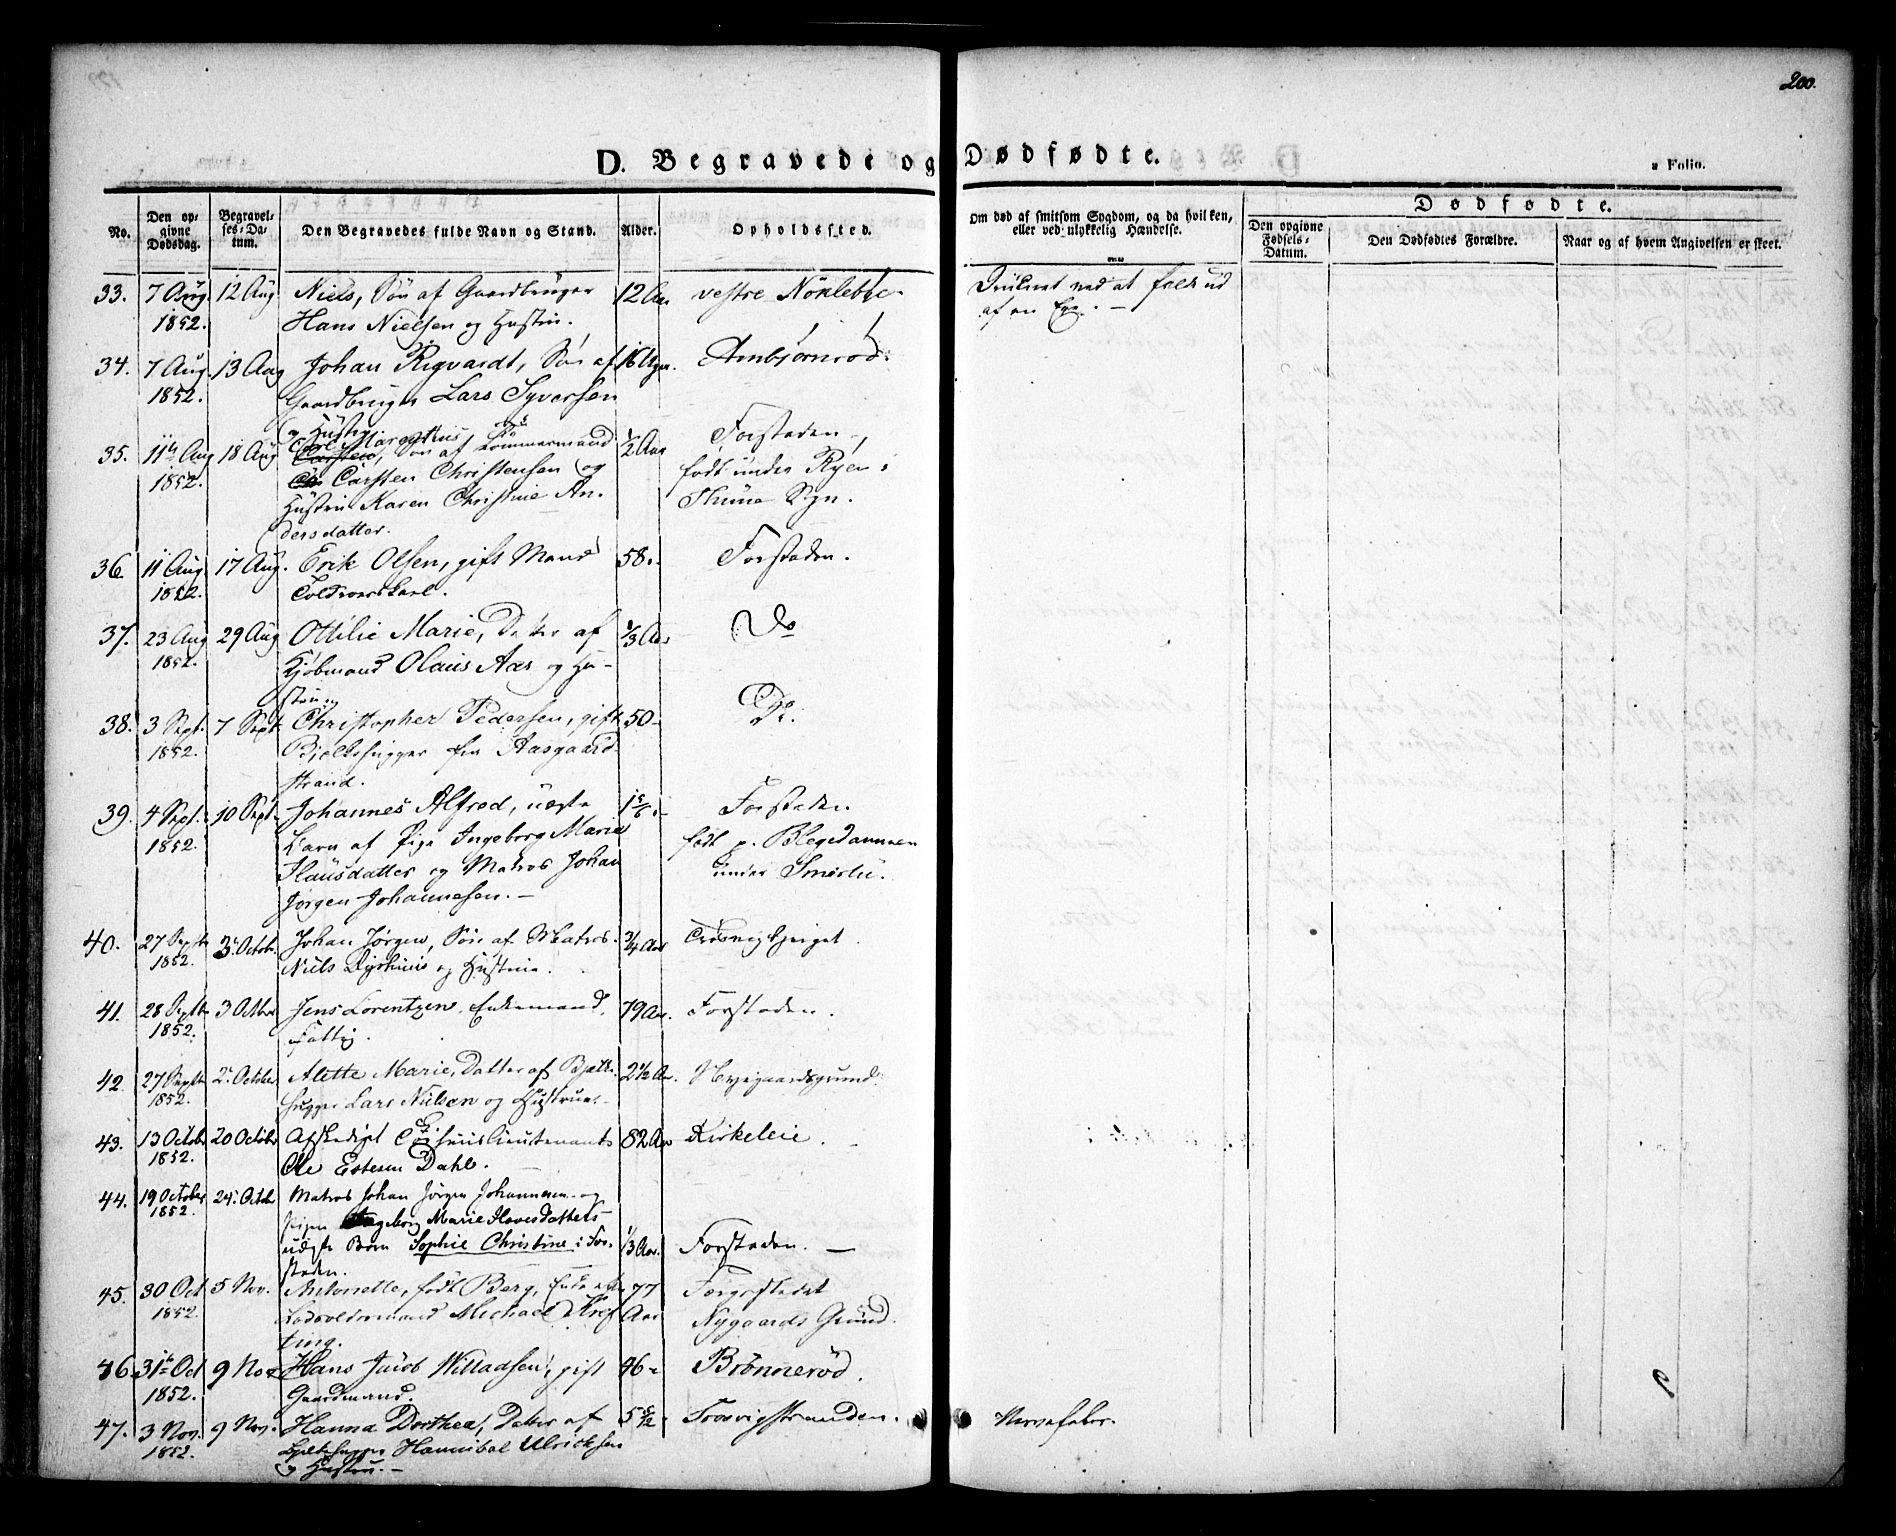 200.
D. Begravede og Dødfødte.
a Folio.
No.
Den opgivne Dødsdag.
Begravelses-Datum.
Den Begravedes fulde Navn og Stand.
Alder.
Opholdssted.
Om død af smitsom Sygdom, og da hvilken, eller ved ulykkelig Hændelse.
Dødfødte.
Den opgivne Fødsels-Datum.
Den Dødfødtes Forældre.
Naar og af hvem Angivelsen er skeet.
33. 7 Aug 12 Aug Niels, Søn af Gaardbruger 12 Aar vestre Nøklebye ved at falde ud
1852. Hans Nielsen og Hustru. af en
34. 7 Aug 13 Aug Johan Rigvardt, Søn af 16 Ambjørnrød.
1852. Gaardbruger Lars Syversen
og Hustru
35. 11te Aug 18 Aug Søn af Tømmermand ½ Aar Forstaden,
1852. Carsten Christensen og født under Ryen i
Hustru Karen Christine An- Thune Sgn.
dersdatter.
36. 11 Aug. 17 Aug. Erik Olsen, gift Mand 58. Forstaden.
1852. Toldroerskarl.
37. 23 Aug 29 Aug Ottilie Marie, Datter af ⅓ Aar Do
1852. Kjøbmand Olaus Aas og Hu-
stru
38. 3 Sept. 7 Sept Christopher Pedersen, gift 50 Do.
1852. Bjelkehugger fra Aasgaard-
strand.
39. 4 Sept. 10 Sept. Johannes Alfred, uægte 1 5/6 Forstaden
1852. Barn af Pige Ingeborg Marie født p. Blegedammen
Hansdatter og Matros Johan under Smertu.
Jørgen Johannesen. —
40. 27 Septbr 3. Octobr. Johan Jørgen, Søn af Matros ¾ Aar Trosvigbjerget.
1852. Niels og Hustrue.
41. 28 Septbr 3 Octbr Jens Lorentzen, Enkemand, 79 Aar. Forstaden.
1852. Fattig.
42. 27 Septbr 2. October Alette Marie, Datter af Bjelk- 2½ Aar. Nyegaardsgrund.
1852. hugger Lars Nielsen og Hustrue.
43. 13 October 20 October Afskediget Lieutenant 82 Aar Kirkeleie.
1852. Ole Estesen Dahl.
44. 19 October 24. Octobr Matros Johan Jørgen Johannesen og
1852. Pigen Ingeborg Marie Hovesdatters
uægte Barn Sophie Christine i For- ⅓ Aar. Forstaden. —
staden.
45. 30 Oct 5 Nov. Antonette, født Berg, Enke efter 77
1852. Michael Kref- Aar Nygaards Grund.
ting.
46. 31te Oct 9 Nov Hans Jacob Willadsen, gift 46 Brønnerød.
1852. Gaardmand.
47. 3 Nov. 9 Nov. Hanna Dorthea, Datter af 5 5/12 Trosvigstranden. Nervefeber.
1852. Bjelkehugger Hannibal Ulricksen
og Hustru. —